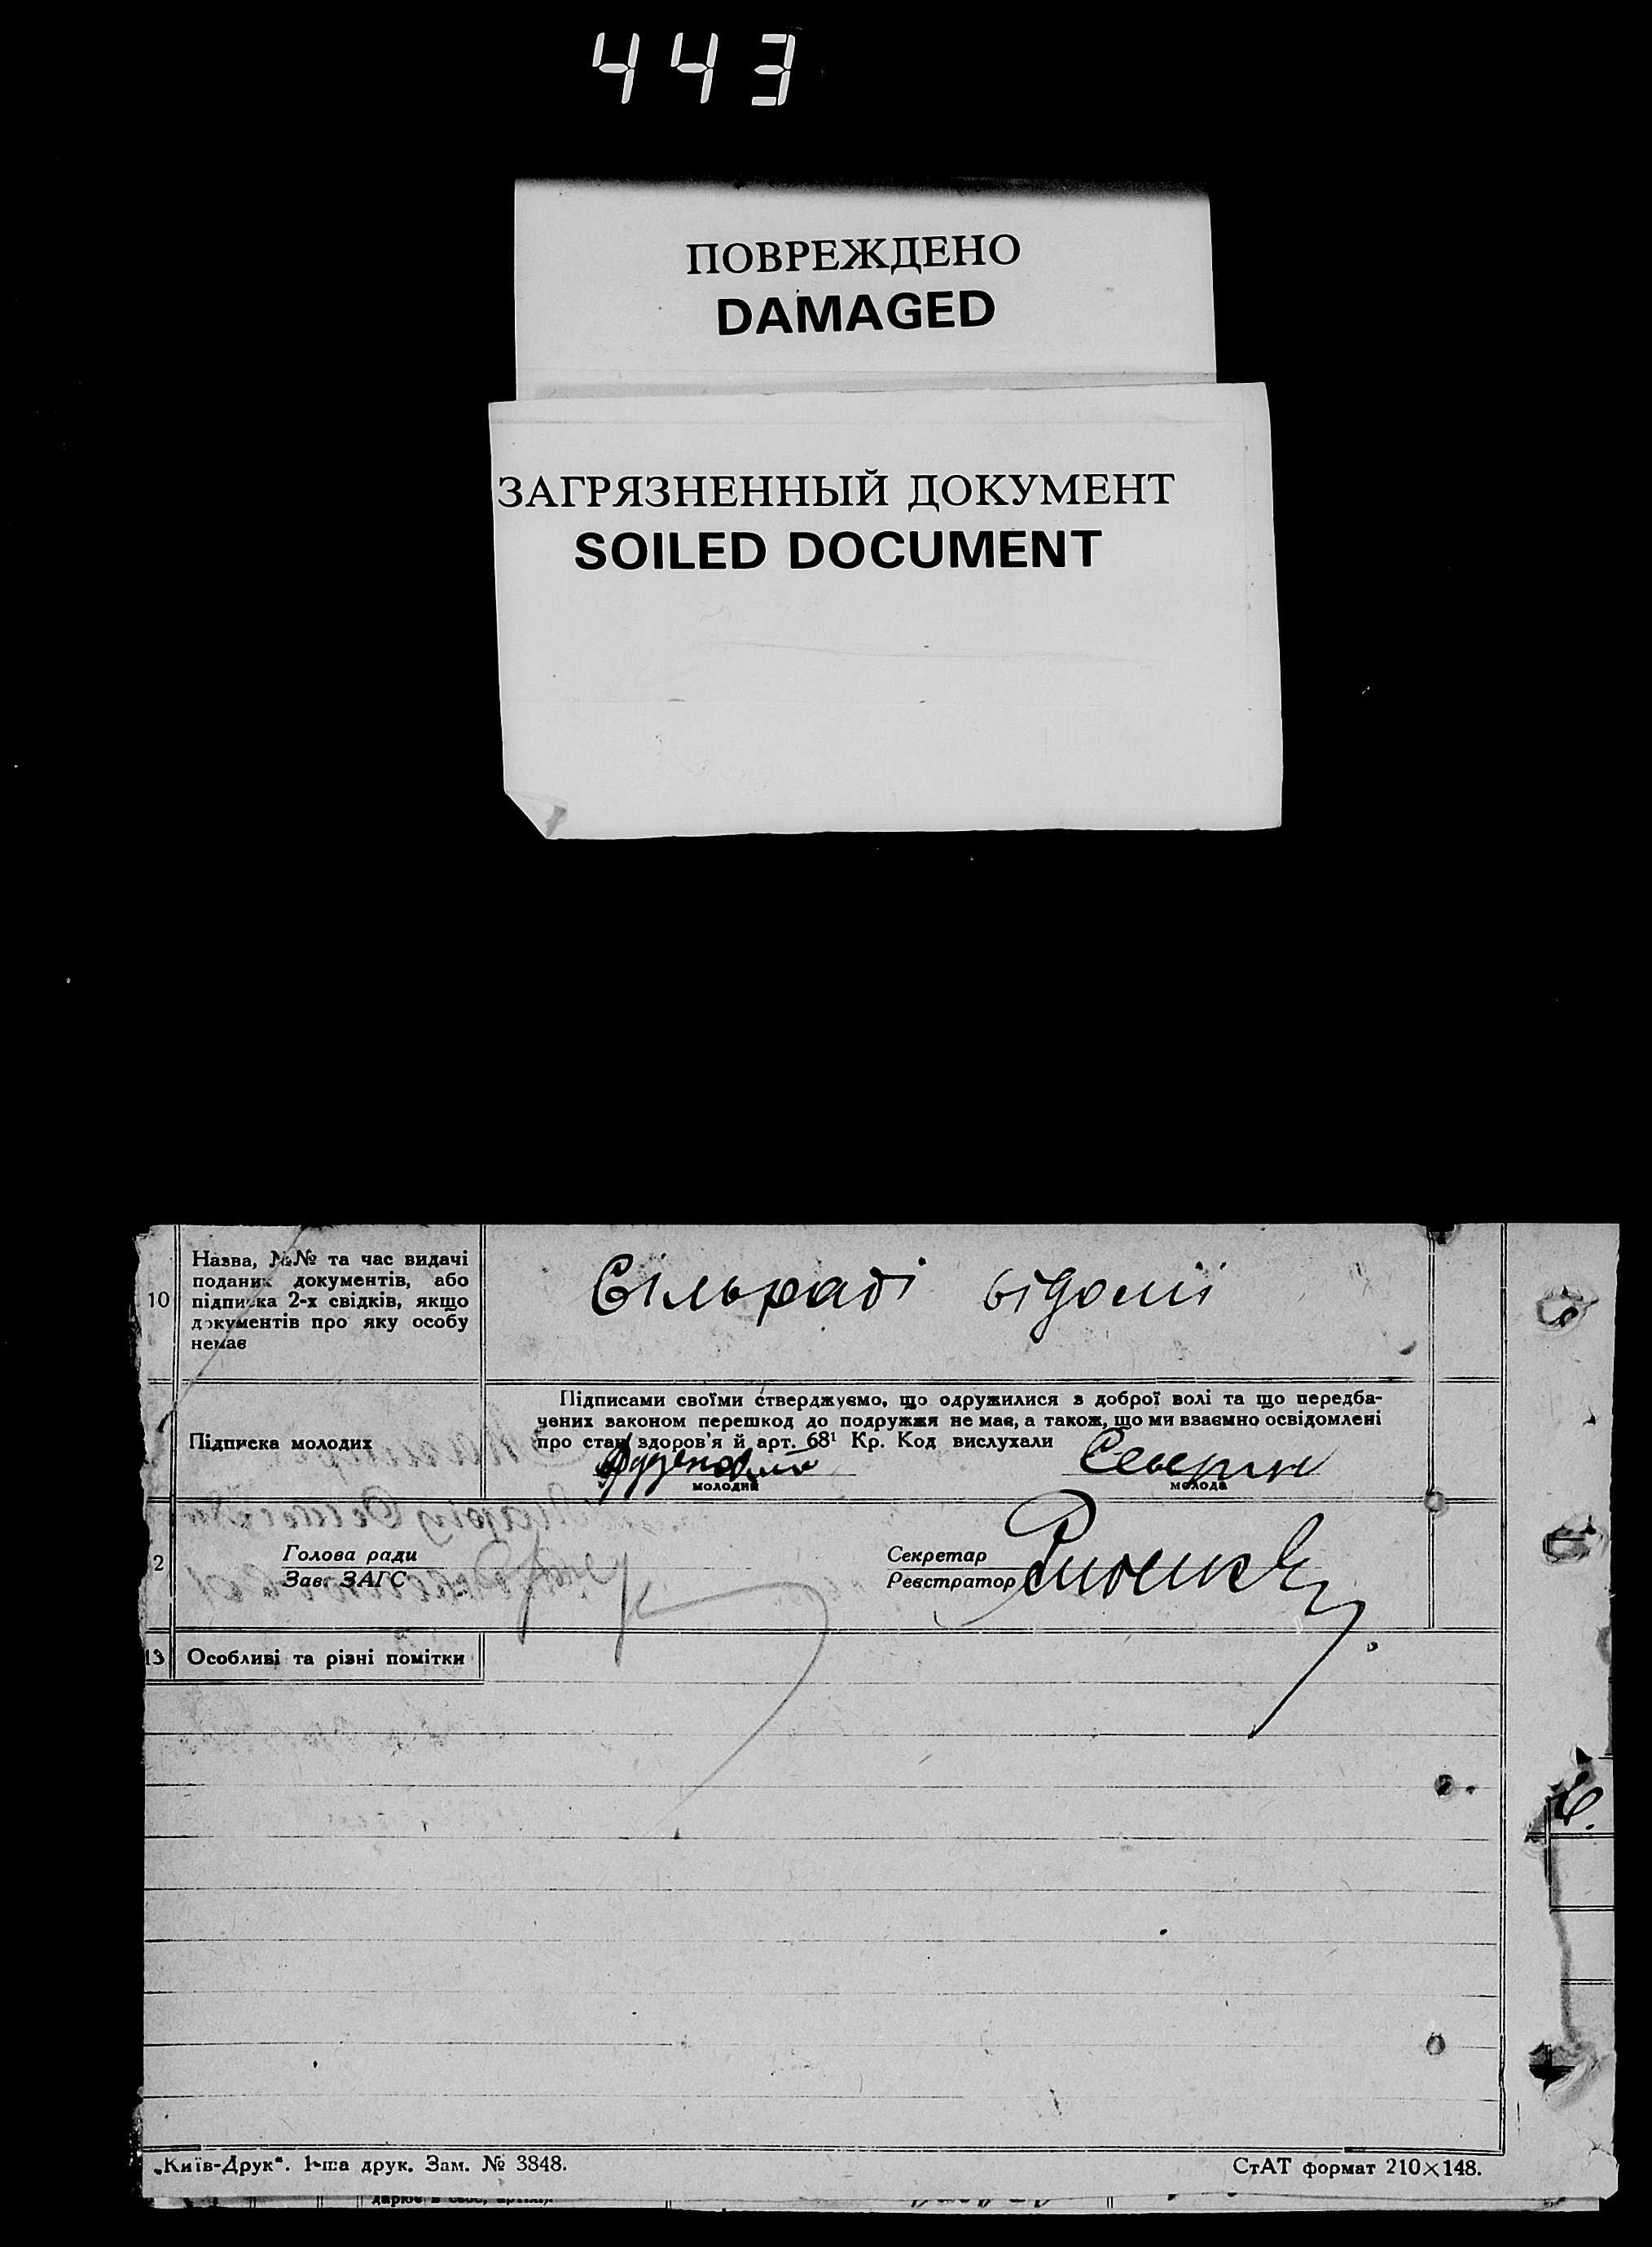 443
ПОВРЕЖДЕНО
DAMAGED
ЗАГРЯЗНЕННЫЙ ДОКУМЕНТ
SOILED DOCUMENT
10
Назва, №№ та час видачі
поданих документів, або
підписка 2-х свідків, якщо
документів про яку особу
немає
Сільраді відомі
Підписка молодих
Підписами своїми стверджуємо, що одружилися з доброї волі та що передба-
чених законом перешкод до подружжя не має, а також, що ми взаємно освідомлені
про стан здоров'я й арт. 68¹ Кр. Код вислухали
молодий
молода
2
Голова ради
Зав. ЗАГС
Секретар
Реєстратор
13
Особливі та різні помітки
„Київ-Друк“. 1-ша друк. Зам. № 3848.
СтАТ формат 210×148.